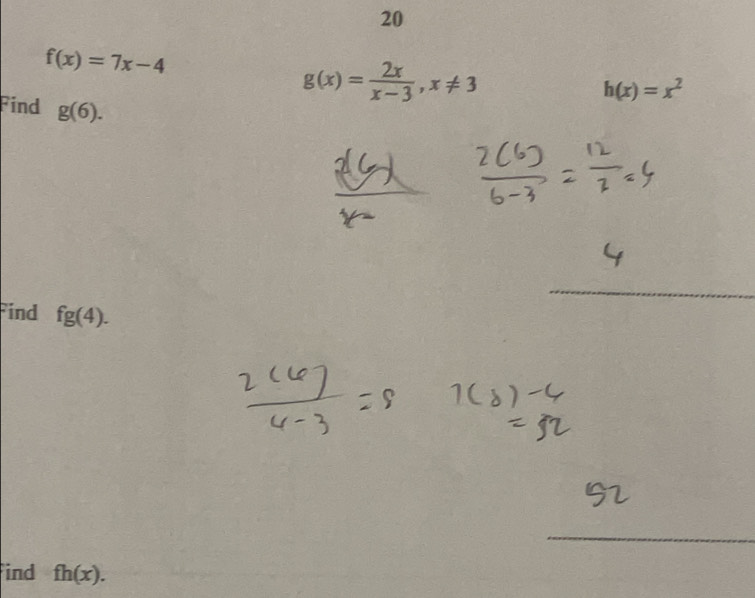 20
f(x) = 7x − 4
g(x) = 2x/(x − 3), x ≠ 3
h(x) = x²
Find g(6).
2(6)/(6−3) = 12/3 = 4
4
Find fg(4).
2(4)/(4−3) = 8
7(8)−4
= 52
52
Find fh(x).